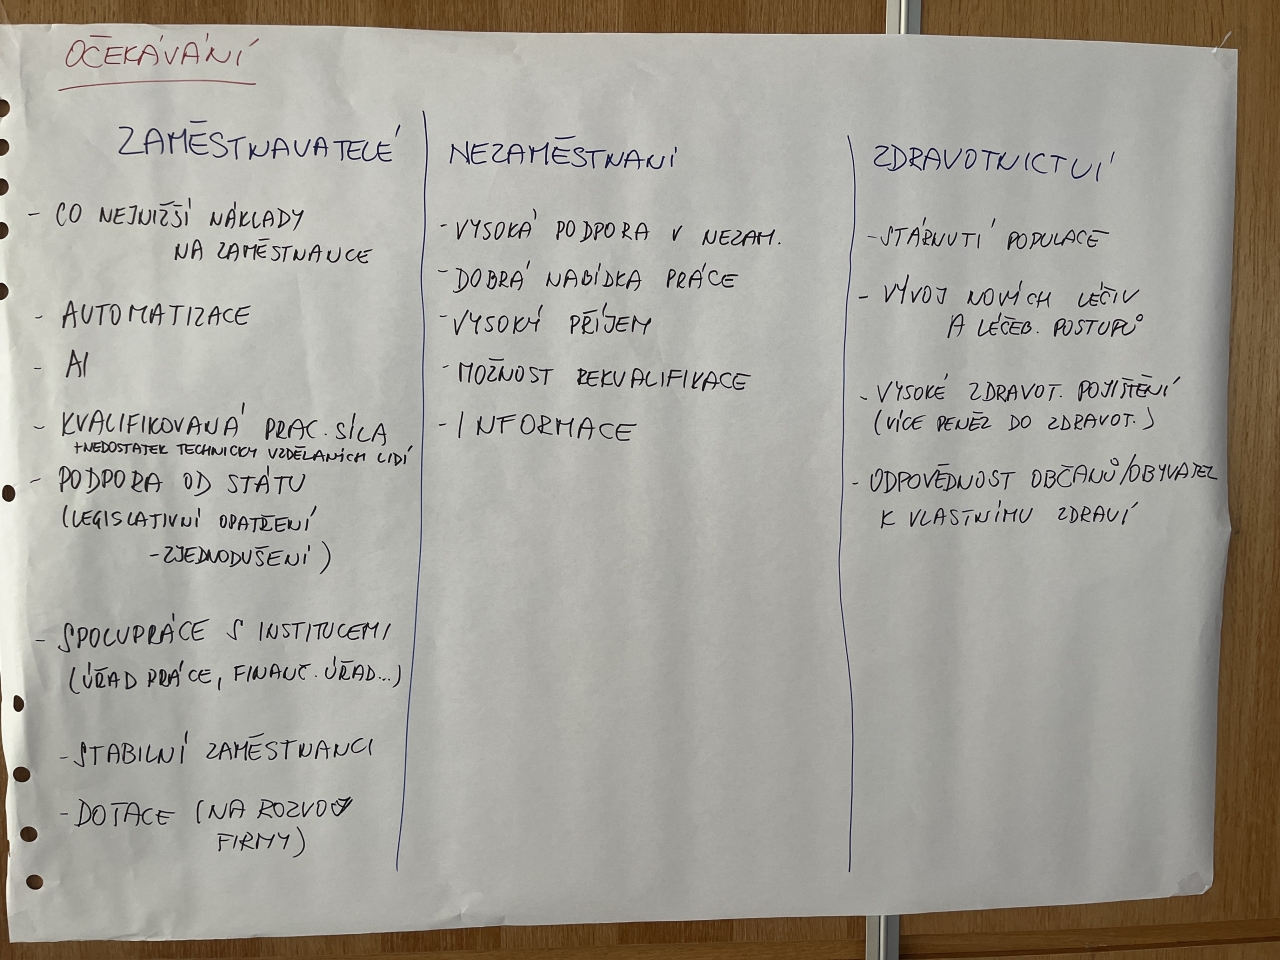 OČEKÁVÁNÍ
ZAMĚSTNAVATELÉ
- CO NEJNIŽŠÍ NÁKLADY
NA ZAMĚSTNANCE
- AUTOMATIZACE
- AI
- KVALIFIKOVANÁ PRAC. SÍLA
+NEDOSTATEK TECHNICKY VZDĚLANÝCH LIDÍ
- PODPORA OD STÁTU
(LEGISLATIVNÍ OPATŘENÍ
- ZJEDNODUŠENÍ)
- SPOLUPRÁCE S INSTITUCEMI
(ÚŘAD PRÁCE, FINANČ. ÚŘAD...)
- STABILNÍ ZAMĚSTNANCI
- DOTACE (NA ROZVOJ
FIRMY)
NEZAMĚSTNANÍ
- VYSOKÁ PODPORA V NEZAM.
- DOBRÁ NABÍDKA PRÁCE
- VYSOKÝ PŘÍJEM
- MOŽNOST REKVALIFIKACE
- INFORMACE
ZDRAVOTNICTVÍ
- STÁRNUTÍ POPULACE
- VÝVOJ NOVÝCH LÉČIV
A LÉČEB. POSTUPŮ
- VYSOKÉ ZDRAVOT. POJIŠTĚNÍ
(VÍCE PENĚZ DO ZDRAVOT.)
- ODPOVĚDNOST OBČANŮ/OBYVATEL
K VLASTNÍMU ZDRAVÍ